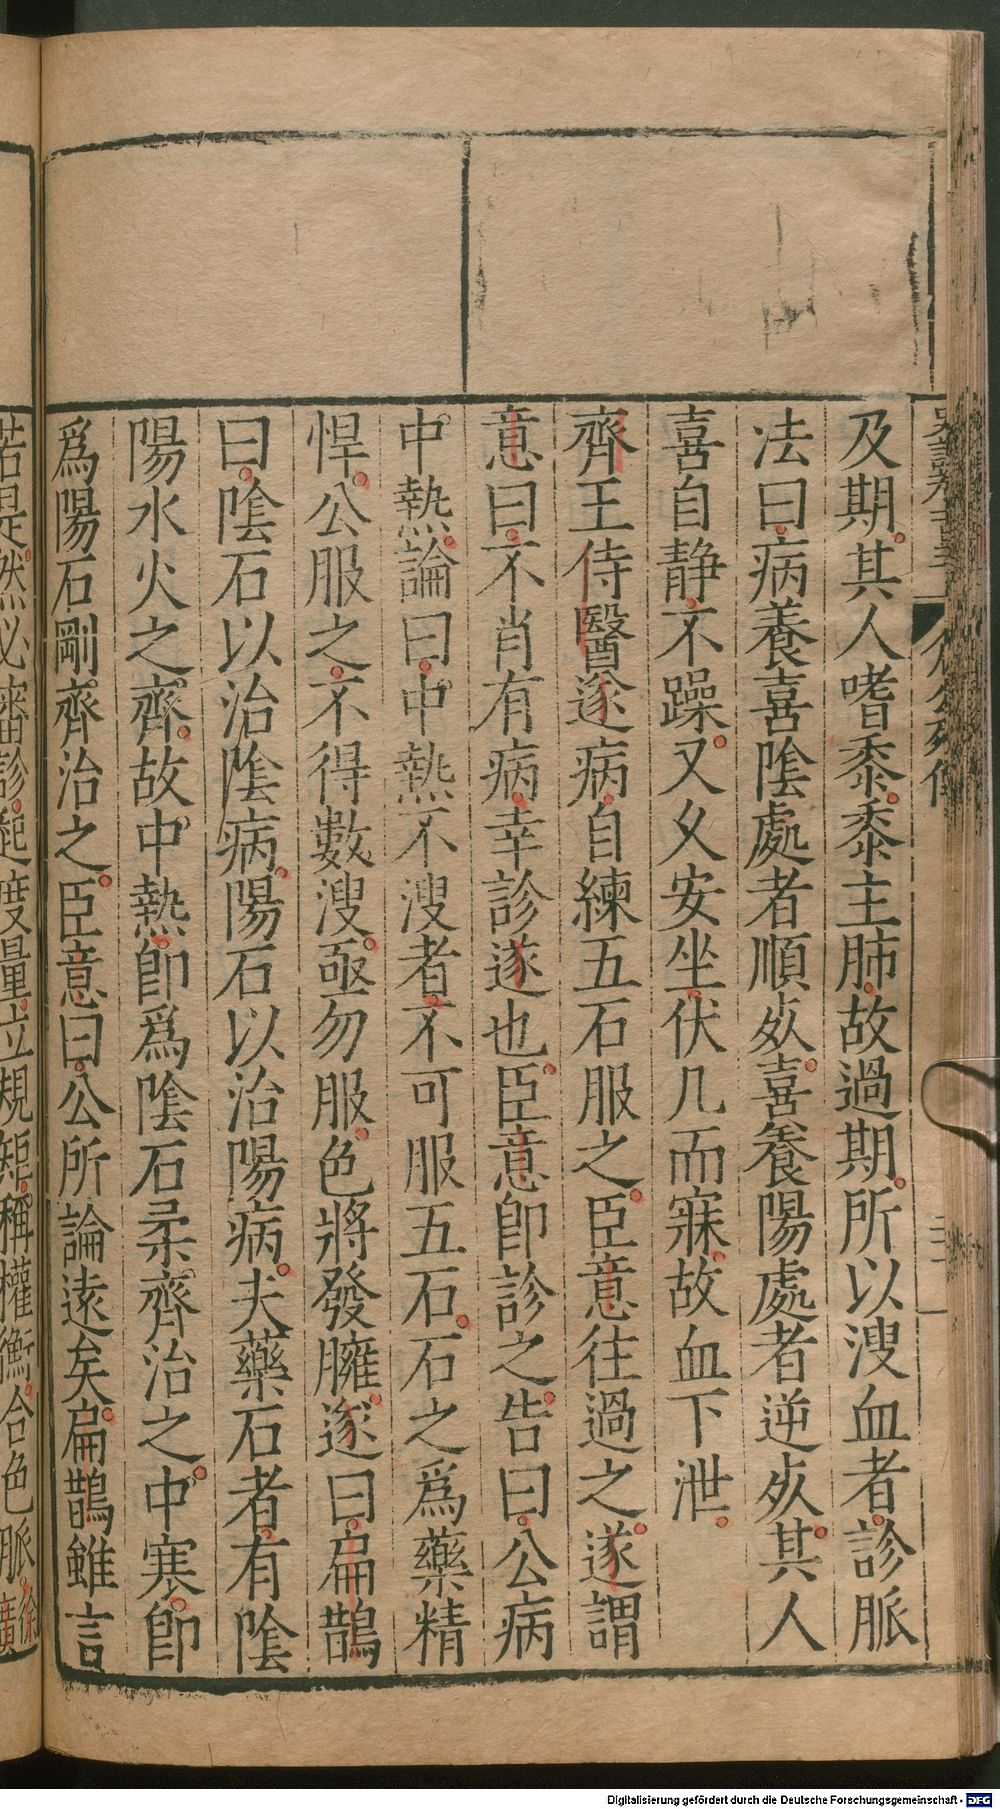 及期其人嗜黍黍主肺故過期所以溲血者診脈
法曰病養喜陰處者順死喜養陽處者逆死其人
喜自静不躁又久安坐伏几而寐故血下泄
齊王侍醫遂病自練五石服之臣意往過之遂謂
意曰不肖有病幸診遂也臣意即診之告曰公病
中熱論曰中熱不溲者不可服五石石之為藥精
悍公服之不得數溲亟勿服色將發臃遂曰扁鵲
曰陰石以治陰病陽石以治陽病夫藥石者有陰
陽水火之齊故中熱即為陰石柔齊治之中寒即
為陽石剛齊治之臣意曰公所論遠矣扁鵲雖言
若是然必審診起度量立規矩稱權衡合色脈
徐廣
Digitalisierung gefördert durch die Deutsche Forschungsgemeinschaft - DFG